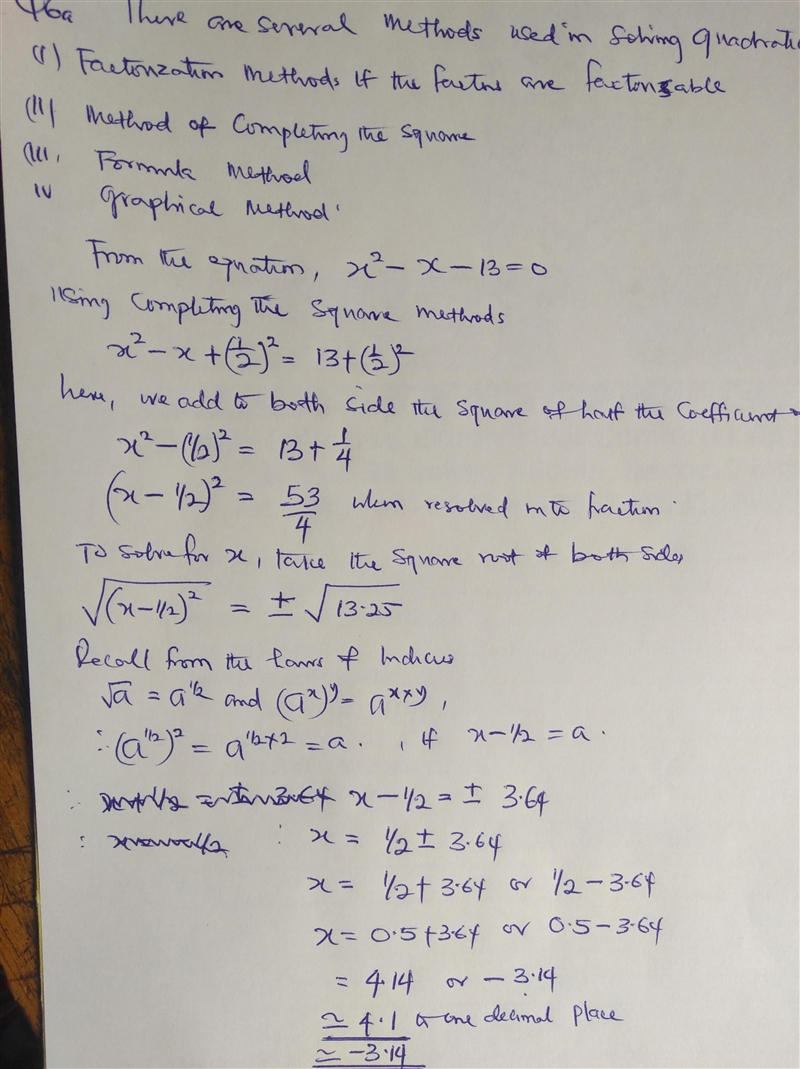 46a There are several methods used in solving quadratic
(I) Factorization methods if the factors are factorisable
(II) Method of Completing the square
(III. Formula method
IV Graphical method.
From the equation, x² - x - 13 = 0
Using Completing the square methods
x² - x + (1/2)² = 13 + (1/2)²
here, we add to both side the square of half the coefficient
x² - (1/2)² = 13 + 1/4
(x - 1/2)² = 53/4 when resolved into fraction.
To solve for x, take the square root of both sides
√(x - 1/2)² = ± √13.25
Recall from the laws of Indices
√a = a^1/2 and (a^x)^y = a^x×y,
∴ (a^1/2)² = a^1/2×2 = a. , if x - 1/2 = a.
∴ x - 1/2 = ± 3.64
: : x = 1/2 ± 3.64
x = 1/2 + 3.64 or 1/2 - 3.64
x = 0.5 + 3.64 or 0.5 - 3.64
= 4.14 or - 3.14
≃ 4.1 to one decimal place
≃ -3.14